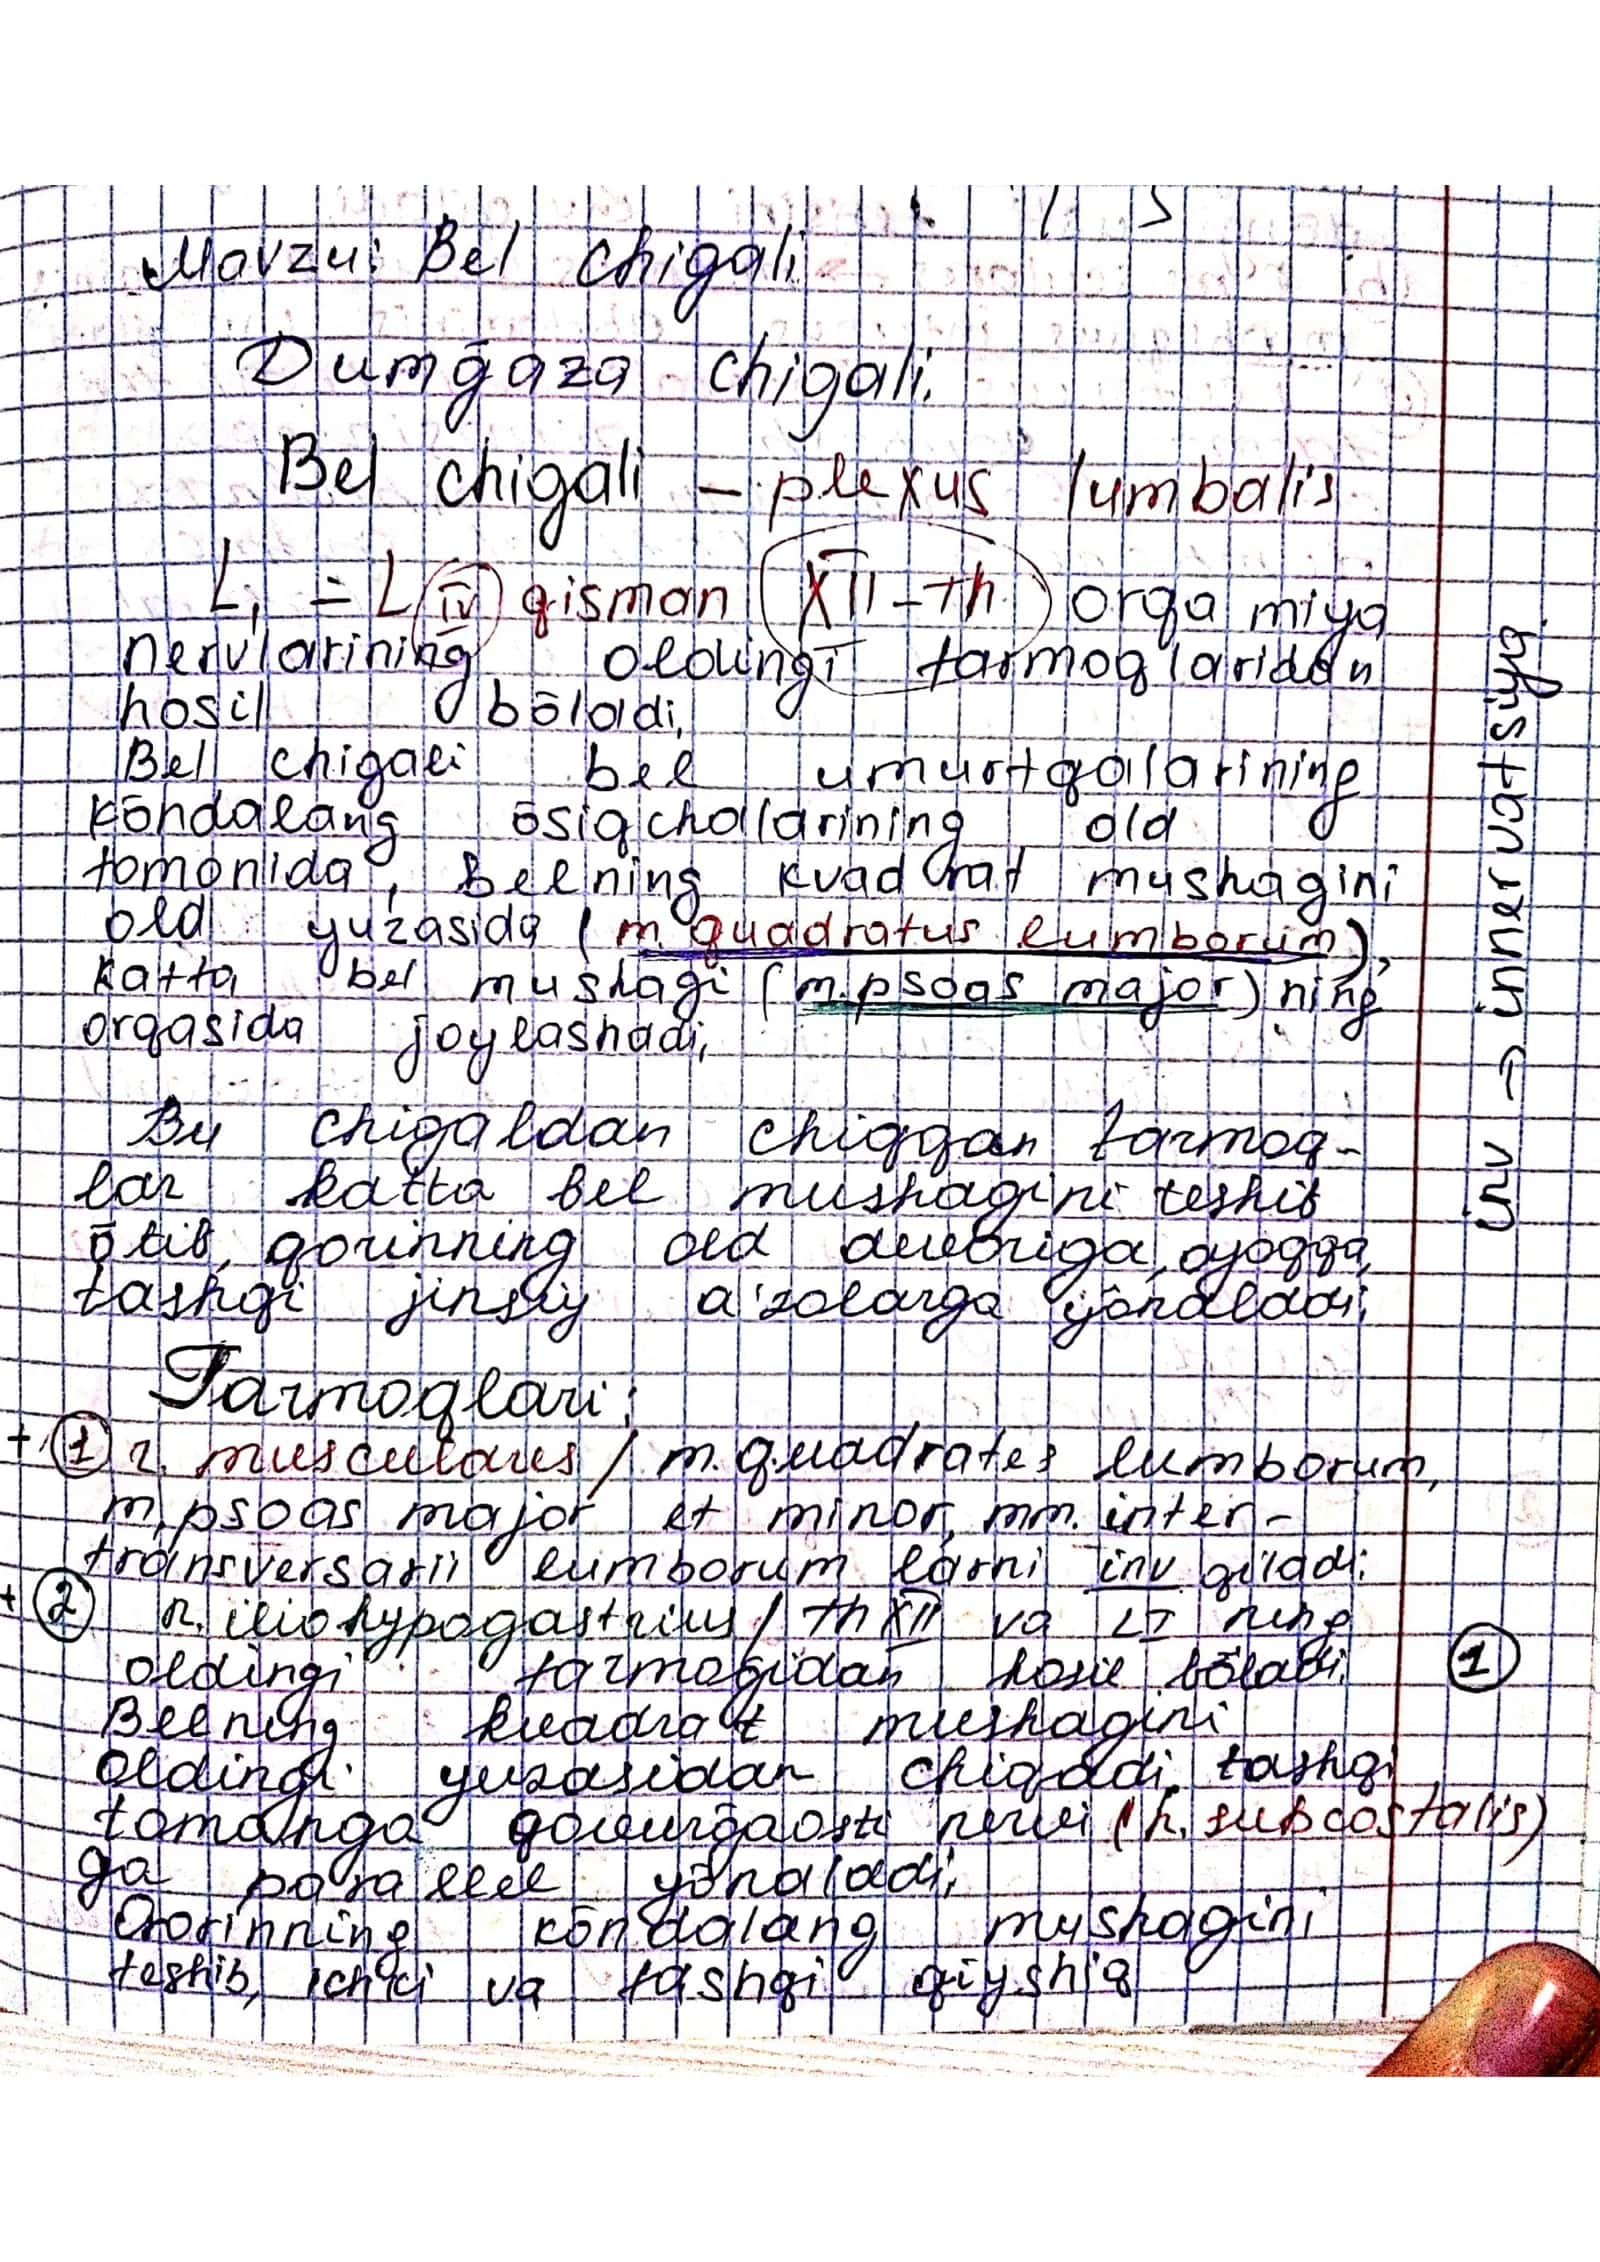 Mavzu: Bel chigali
Dumḡaza chigali.
Bel chigali – plexus lumbalis
L₁ = L IV qisman XII-Th. orqa miya
nervlarining oldingi tarmoqlaridan
hosil bōladi,
Bel chigali bel umurtqalarining
kōndalang ōsiqchalarining old
tomonida, belning kvadrat mushagini
old yuzasida (m. quadratus lumborum),
katta bel mushagi (m. psoas major) ning
orqasida joylashadi,
Bu chigaldan chiqqan tarmoq-
lar katta bel mushagini teshib
ōtib, qorinning old devoriga, oyoqqa,
tashqi jinsiy a'zolarga yōnaladi;
Tarmoqlari:
+ 1 r. musculares / m. quadrates lumborum,
m, psoas major et minor, mm. inter-
transversarii lumborum larni inv qiladi;
+ 2 n. iliohypogastrius / Th XII va LI ning
oldingi tarmogidan hosil bōladi,
Belning kvadrat mushagini
oldingi yuzasidan chiqadi, tashqi
tomonga qovurḡaosti nervi (n. subcostalis)
ga parallel yōnaladi,
Qorinning kōndalang mushagini
teshib, ichki va tashqi qiyshiq
inv → innervatsiya.
1